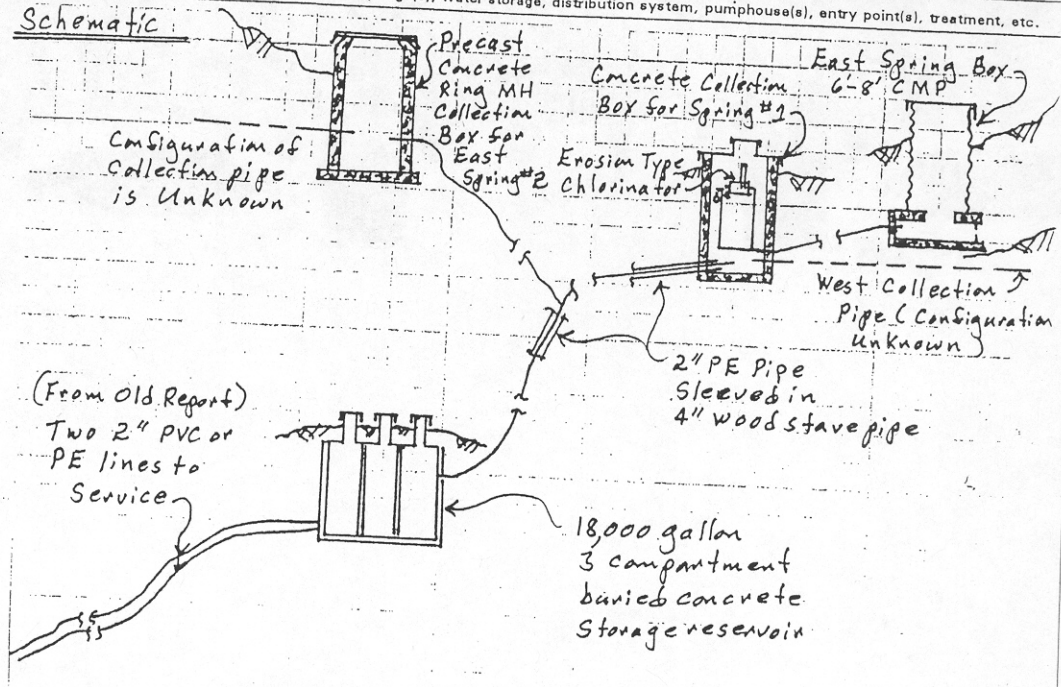 water storage, distribution system, pumphouse(s), entry point(s), treatment, etc.
Schematic
Precast
Concrete
Ring MH
Collection
Box for
East
Spring #2
Configuration of
Collection pipe
is Unknown
Concrete Collection
Box for Spring #1
Erosion Type
Chlorinator
East Spring Box
6'-8' CMP
West Collection
Pipe (Configuration
Unknown)
2" PE Pipe
Sleeved in
4" wood stave pipe
(From Old Report)
Two 2" PVC or
PE lines to
Service
18,000 gallon
3 compartment
buried concrete
Storage reservoir